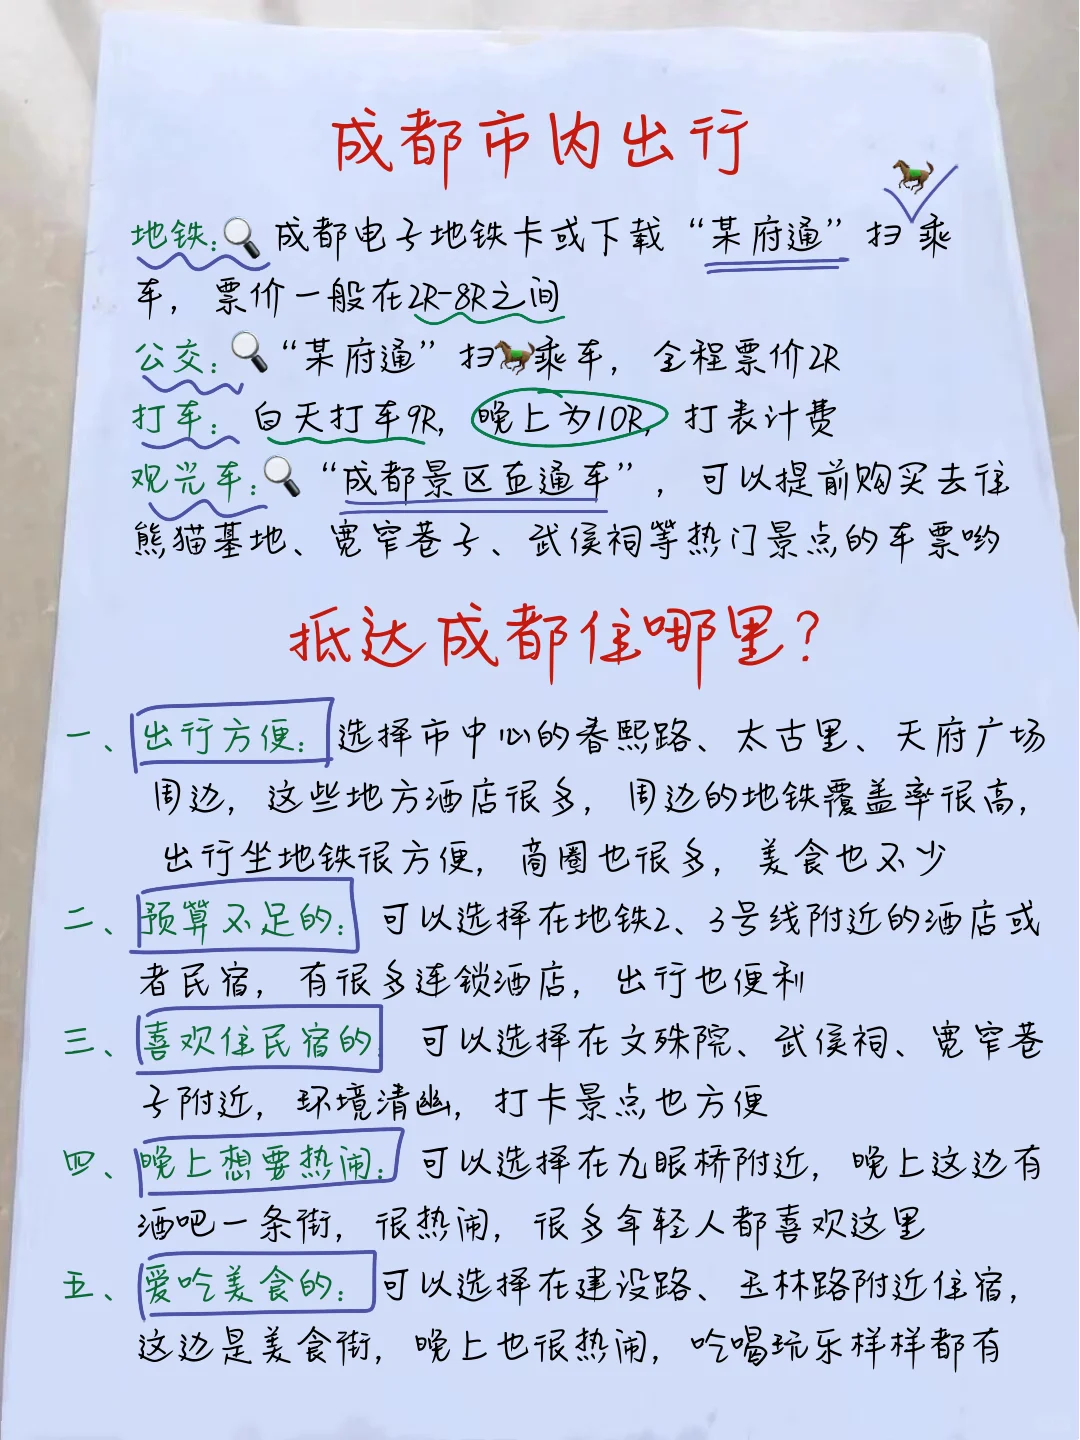 成都市内出行
地铁：成都电子地铁卡或下载“某府通”扫乘
车，票价一般在2R-8R之间
公交：“某府通”扫乘车，全程票价2R
打车：白天打车9R，晚上为10R，打表计费
观光车：“成都景区直通车”，可以提前购买去往
熊猫基地、宽窄巷子、武侯祠等热门景点的车票哟
抵达成都住哪里？
一、出行方便：选择市中心的春熙路、太古里、天府广场
周边，这些地方酒店很多，周边的地铁覆盖率很高，
出行坐地铁很方便，商圈也很多，美食也不少
二、预算不足的：可以选择在地铁2、3号线附近的酒店或
者民宿，有很多连锁酒店，出行也便利
三、喜欢住民宿的：可以选择在文殊院、武侯祠、宽窄巷
子附近，环境清幽，打卡景点也方便
四、晚上想要热闹：可以选择在九眼桥附近，晚上这边有
酒吧一条街，很热闹，很多年轻人都喜欢这里
五、爱吃美食的：可以选择在建设路、玉林路附近住宿，
这边是美食街，晚上也很热闹，吃喝玩乐样样都有